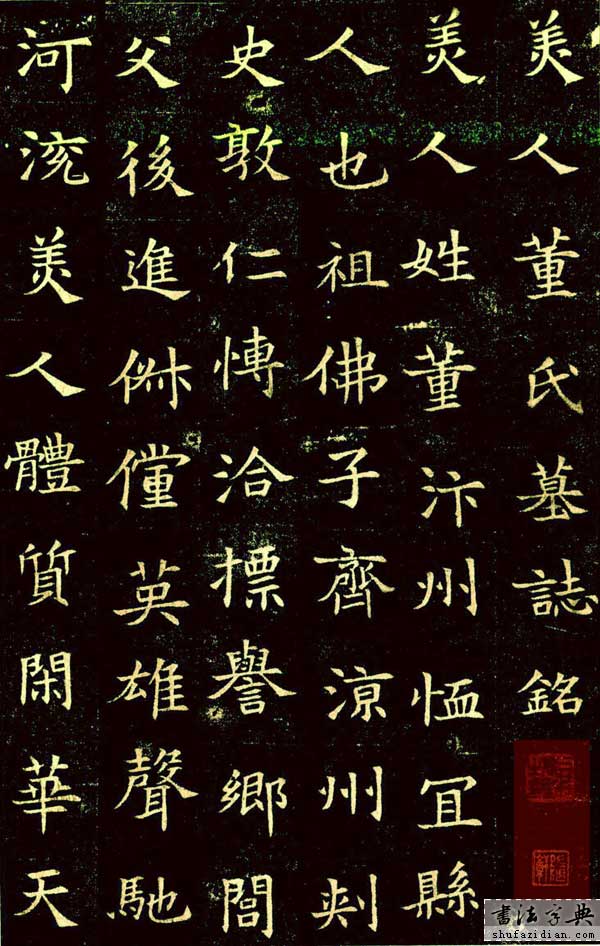 美人董氏墓誌銘
美人姓董汴州恤冝縣
人也祖佛子齊涼州刺
史敦仁博洽摽譽鄉閭
父後進俶儻英雄聲馳
河流美人體質閑華天
書法字典
shufazidian.com